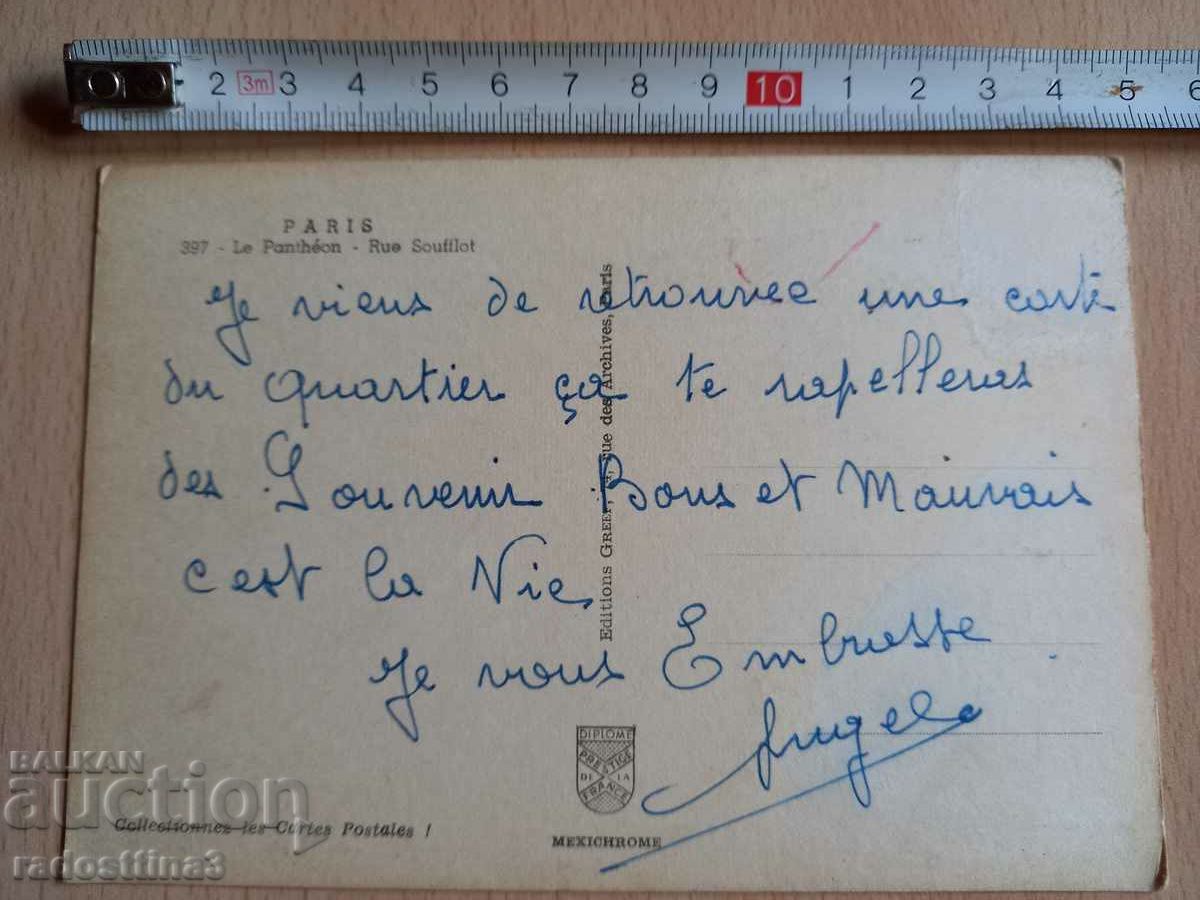 2 3m 3 4 5 6 7 8 9 10 1 2 3 4 5 6
PARIS
397 - Le Panthéon - Rue Soufflot
Je viens de retrouvee une carte
du quartier ça te rapelleras
des Souvenir Bons et Mauvais
c'est la Vie
Je vous Embrasse
Angele
Editions GREFF, rue des Archives, Paris
DIPLOME
PRESTIGE
DE LA
FRANCE
MEXICHROME
Collectionnez les Cartes Postales !
BALKAN
auction
radosttina3